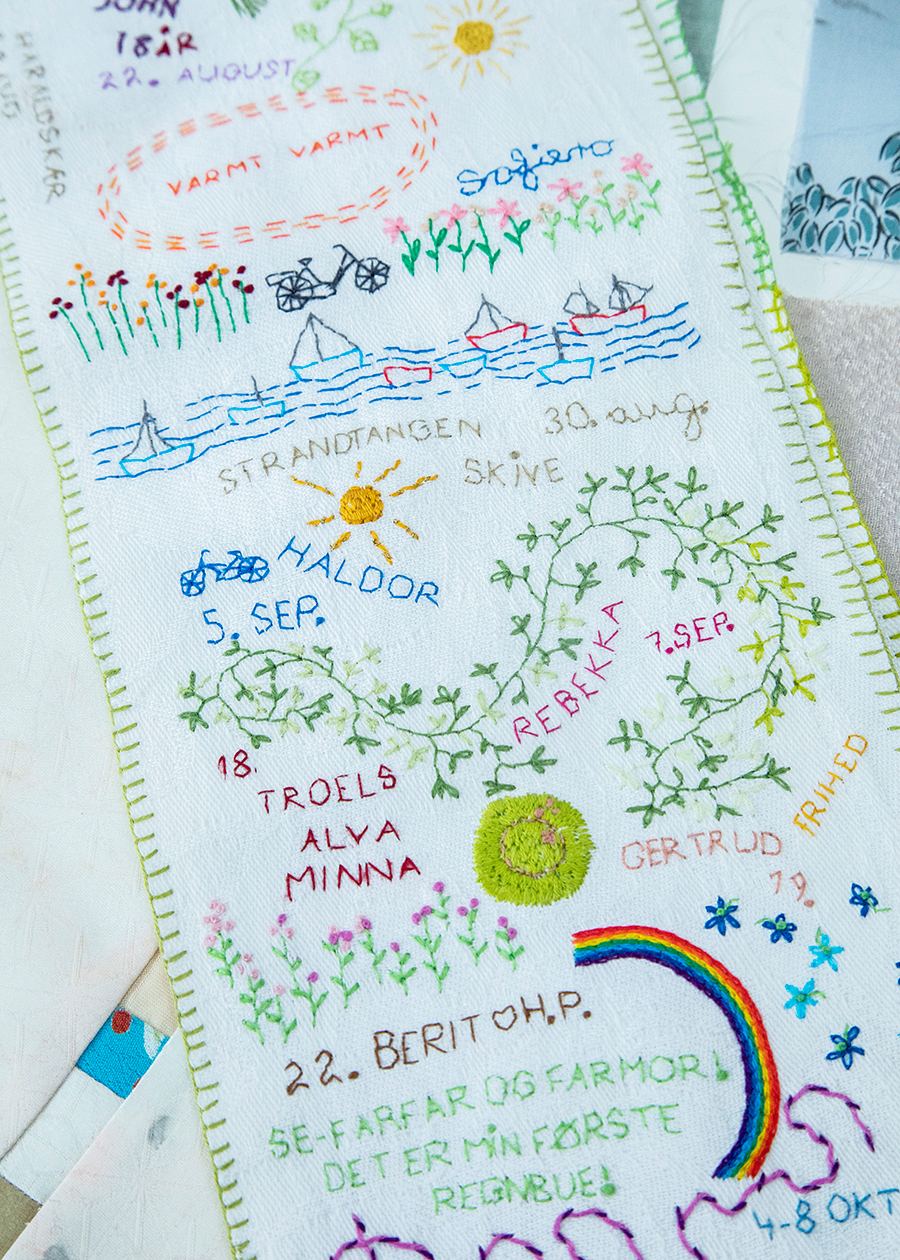 JOHN
18 ÅR
22. AUGUST
HARALDSKÆR
VARMT VARMT
Sofiero
STRANDTANGEN 30. aug.
SKIVE
HALDOR
5. SEP.
REBEKKA
7. SEP.
18.
TROELS
ALVA
MINNA
FRIHED
GERTRUD
19.
22. BERIT ♡ H.P.
SE-FARFAR OG FARMOR!
DET ER MIN FØRSTE
REGNBUE!
4-8 OKT